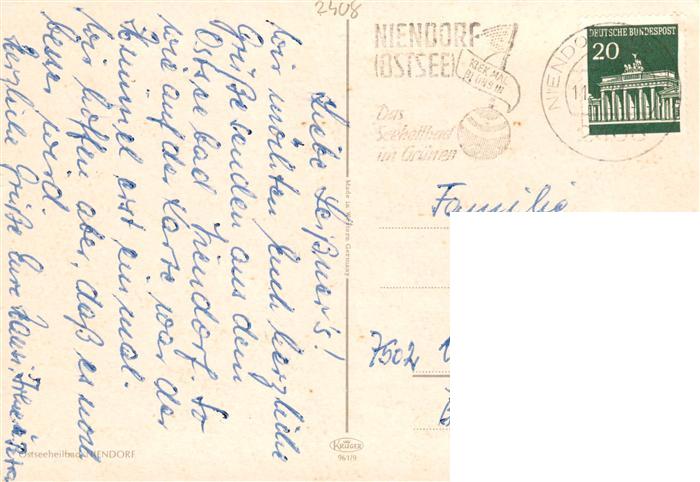 2408
NIENDORF
(OSTSEE)
KIEK MAL
BI UNS IN
Das
Seeheilbad
im Grünen
NIENDO
11.
2408
DEUTSCHE BUNDESPOST
20
Liebe Leißner's!
Wir möchten Euch herzliche
Grüße senden aus dem
Ostseebad Niendorf. So
wie auf der Karte war der
Himmel erst einmal.
Wir hoffen aber, daß es noch
besser wird
Herzliche Grüße Eure Hansi,
Familie
7502
Made in Western Germany
KRÜGER
961/9
Ostseeheilbad NIENDORF